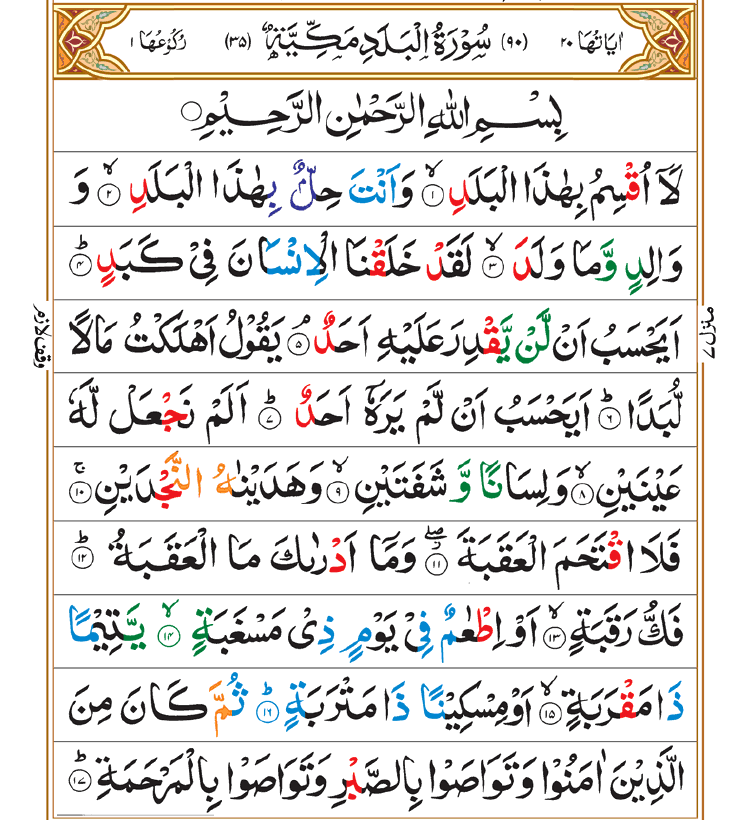 اٰیَاتُهَا ٢٠ (٩٠) سُوْرَةُ الْبَلَدِ مَكِّيَّةٌ (٣٥) رُكُوْعُهَا ١
بِسْمِ اللّٰهِ الرَّحْمٰنِ الرَّحِيْمِ
لَاۤ اُقْسِمُ بِهٰذَا الْبَلَدِ ۙ﴿١﴾ وَاَنْتَ حِلٌّۢ بِهٰذَا الْبَلَدِ ۙ﴿٢﴾ وَ
وَالِدٍ وَّمَا وَلَدَ ۙ﴿٣﴾ لَقَدْ خَلَقْنَا الْاِنْسَانَ فِيْ كَبَدٍ ؕ﴿٤﴾
اَيَحْسَبُ اَنْ لَّنْ يَّقْدِرَ عَلَيْهِ اَحَدٌ ۘ﴿٥﴾ يَقُوْلُ اَهْلَكْتُ مَالًا
لُّبَدًا ؕ﴿٦﴾ اَيَحْسَبُ اَنْ لَّمْ يَرَهٗۤ اَحَدٌ ؕ﴿٧﴾ اَلَمْ نَجْعَلْ لَّهٗ
عَيْنَيْنِ ۙ﴿٨﴾ وَلِسَانًا وَّ شَفَتَيْنِ ۙ﴿٩﴾ وَهَدَيْنٰهُ النَّجْدَيْنِ ۚ﴿١٠﴾
فَلَا اقْتَحَمَ الْعَقَبَةَ ۖ﴿١١﴾ وَمَاۤ اَدْرٰىكَ مَا الْعَقَبَةُ ؕ﴿١٢﴾
فَكُّ رَقَبَةٍ ۙ﴿١٣﴾ اَوْ اِطْعٰمٌ فِيْ يَوْمٍ ذِيْ مَسْغَبَةٍ ۙ﴿١٤﴾ يَّتِيْمًا
ذَا مَقْرَبَةٍ ۙ﴿١٥﴾ اَوْ مِسْكِيْنًا ذَا مَتْرَبَةٍ ؕ﴿١٦﴾ ثُمَّ كَانَ مِنَ
الَّذِيْنَ اٰمَنُوْا وَتَوَاصَوْا بِالصَّبْرِ وَتَوَاصَوْا بِالْمَرْحَمَةِ ؕ﴿١٧﴾
منزل ٧
وقف لازم